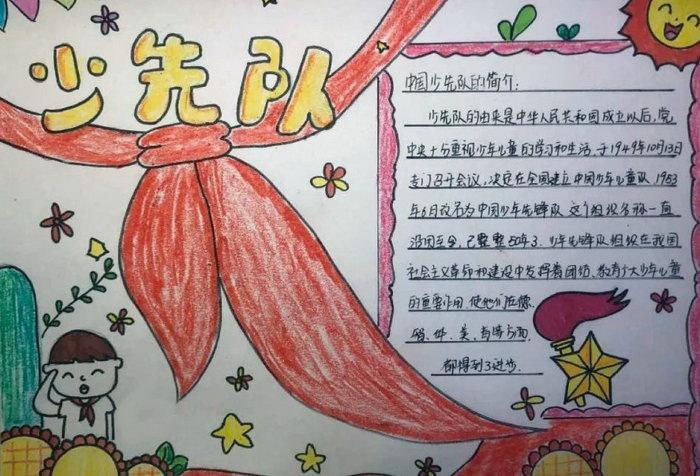 少先队
中国少先队的简介:
少先队的由来是中华人民共和国成立以后,党
中央十分重视少年儿童的学习和生活,于1949年10月13日
专门召开会议,决定在全国建立中国少年儿童队,1953
年6月改名为中国少年先锋队,这个组织名称一直
沿用至今,已整整50年了.少年先锋队组织在我国
社会主义革命和建设中发挥着团结、教育广大少年儿童
的重要作用,使他们在德、
智、体、美、劳等方面,
都得到了进步.